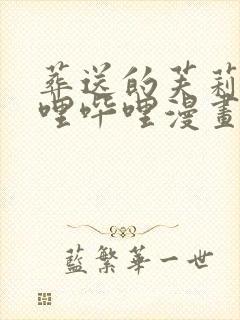 葬送的芙莉
哩哔哩漫畫
藍繁華一世